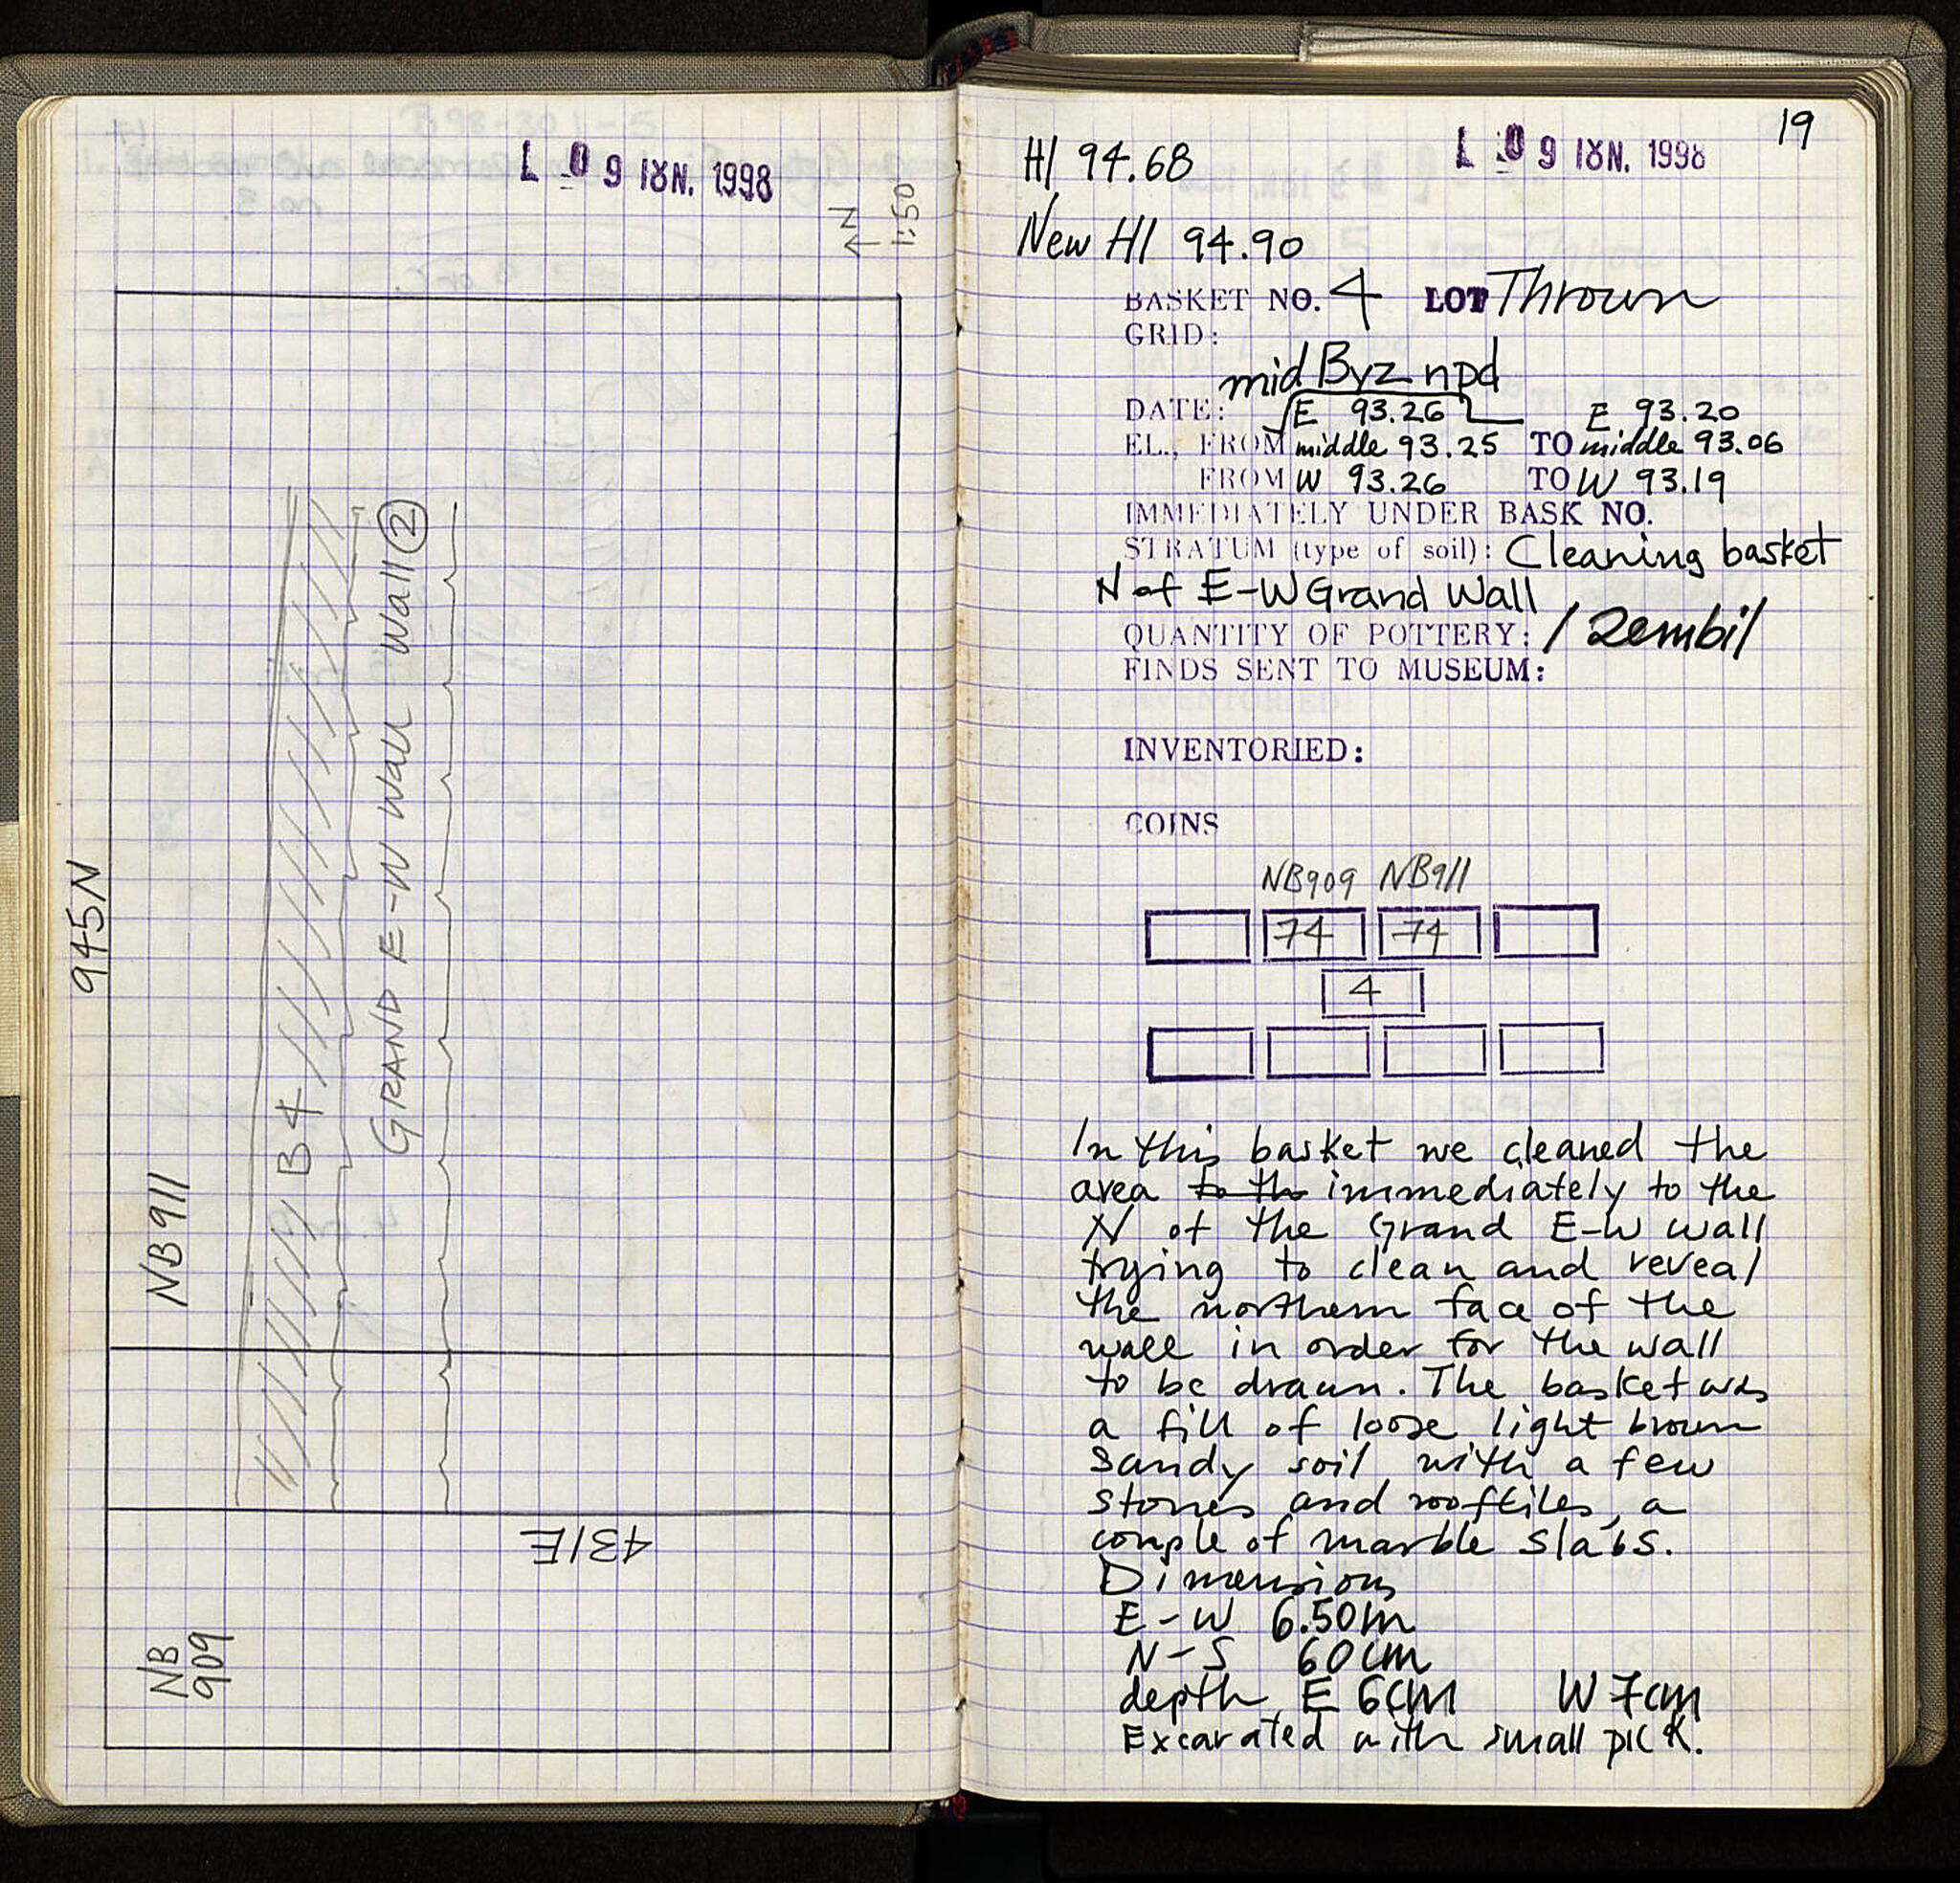 L 09 ΙΟΥΝ. 1998
N
1:50
GRAND E-W Wall Wall 2
B4
945N
NB911
431E
NB
909
19
HI 94.68
L 09 ΙΟΥΝ. 1998
New HI 94.90
BASKET NO. 4 LOT Thrown
GRID:
mid Byz npd
DATE: E 93.26 E 93.20
EL., FROM middle 93.25 TO middle 93.06
FROM W 93.26 TO W 93.19
IMMEDIATELY UNDER BASK NO.
STRATUM (type of soil): Cleaning basket
N of E-W Grand Wall
QUANTITY OF POTTERY: 1 Zembil
FINDS SENT TO MUSEUM:
INVENTORIED:
COINS
NB909 NB911
74 74
4
In this basket we cleaned the
area to th immediately to the
N of the Grand E-W wall
trying to clean and reveal
the northern face of the
wall in order for the wall
to be drawn. The basket was
a fill of loose light brown
sandy soil with a few
stones and rooftiles, a
couple of marble slabs.
Dimensions
E-W 6.50m
N-S 60cm
depth E 6cm W 7cm
Excavated with small pick.